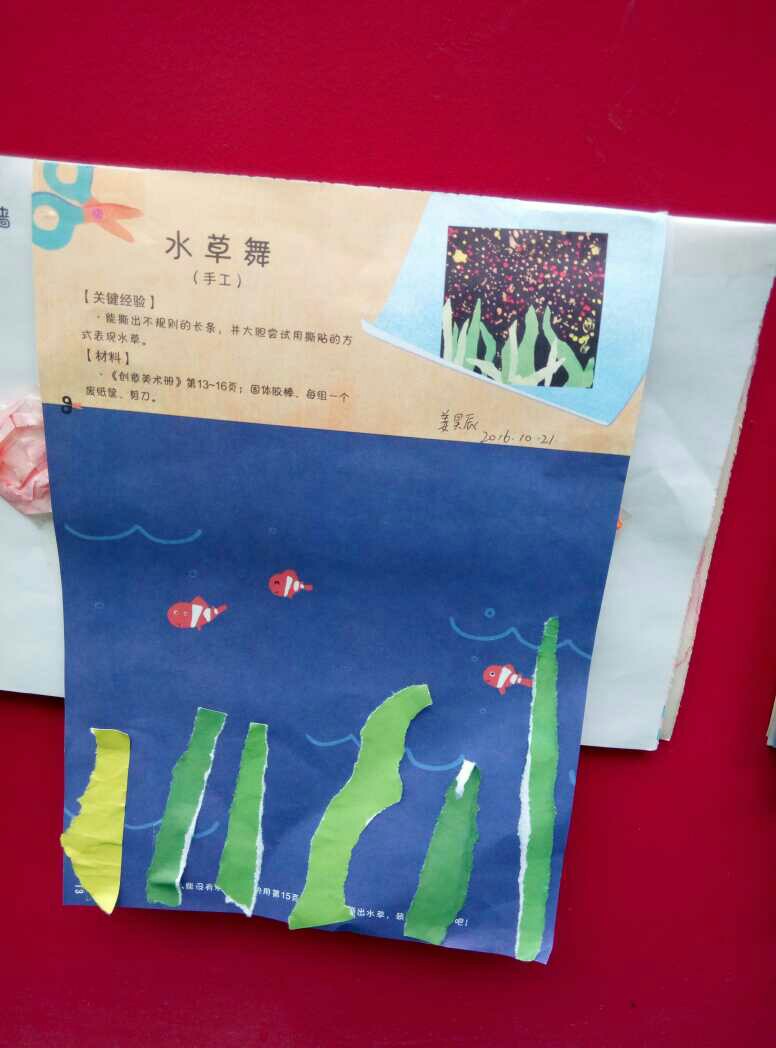 墙
水草舞
（手工）
【关键经验】
·能撕出不规则的长条，并大胆尝试用撕贴的方
式表现水草。
【材料】
·《创意美术册》第13~16页；固体胶棒、每组一个
废纸筐、剪刀。
2016.10.21
13
能没有水
用第15页
出水草，装
吧！